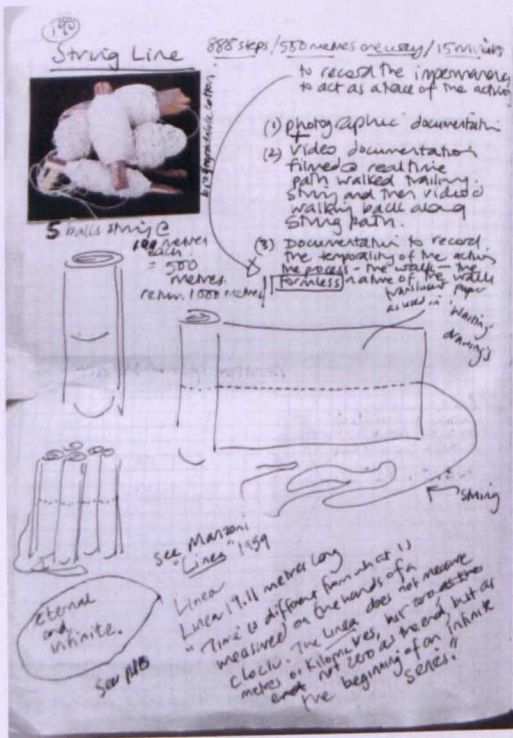 String Line
888 steps/500 metres one way/15 minutes
to record the impermanency
to act as a trace of the action
biodegradable cotton
(1) photographic documentation
+
(2) video documentation
filmed @ realtime
path walked trailing
string and then video'd
walking back along
string path.
(3) Documentation to record
the temporality of the action
the process - the walk - the
formless nature of the walk
translucent paper
as used in 'Waiting'
drawings
5 balls string @
100 metres
each
= 500
metres
return 1000 metres
string
see Manzoni
"Linea" 1959
Linea
Linea 19.11 metres long
"Time is different from what is
measured on the hands of a
clock. The Linea does not measure
metres or kilometres, but zero
not zero as the end, but as
the beginning of an infinite
series."
eternal
and
infinite.